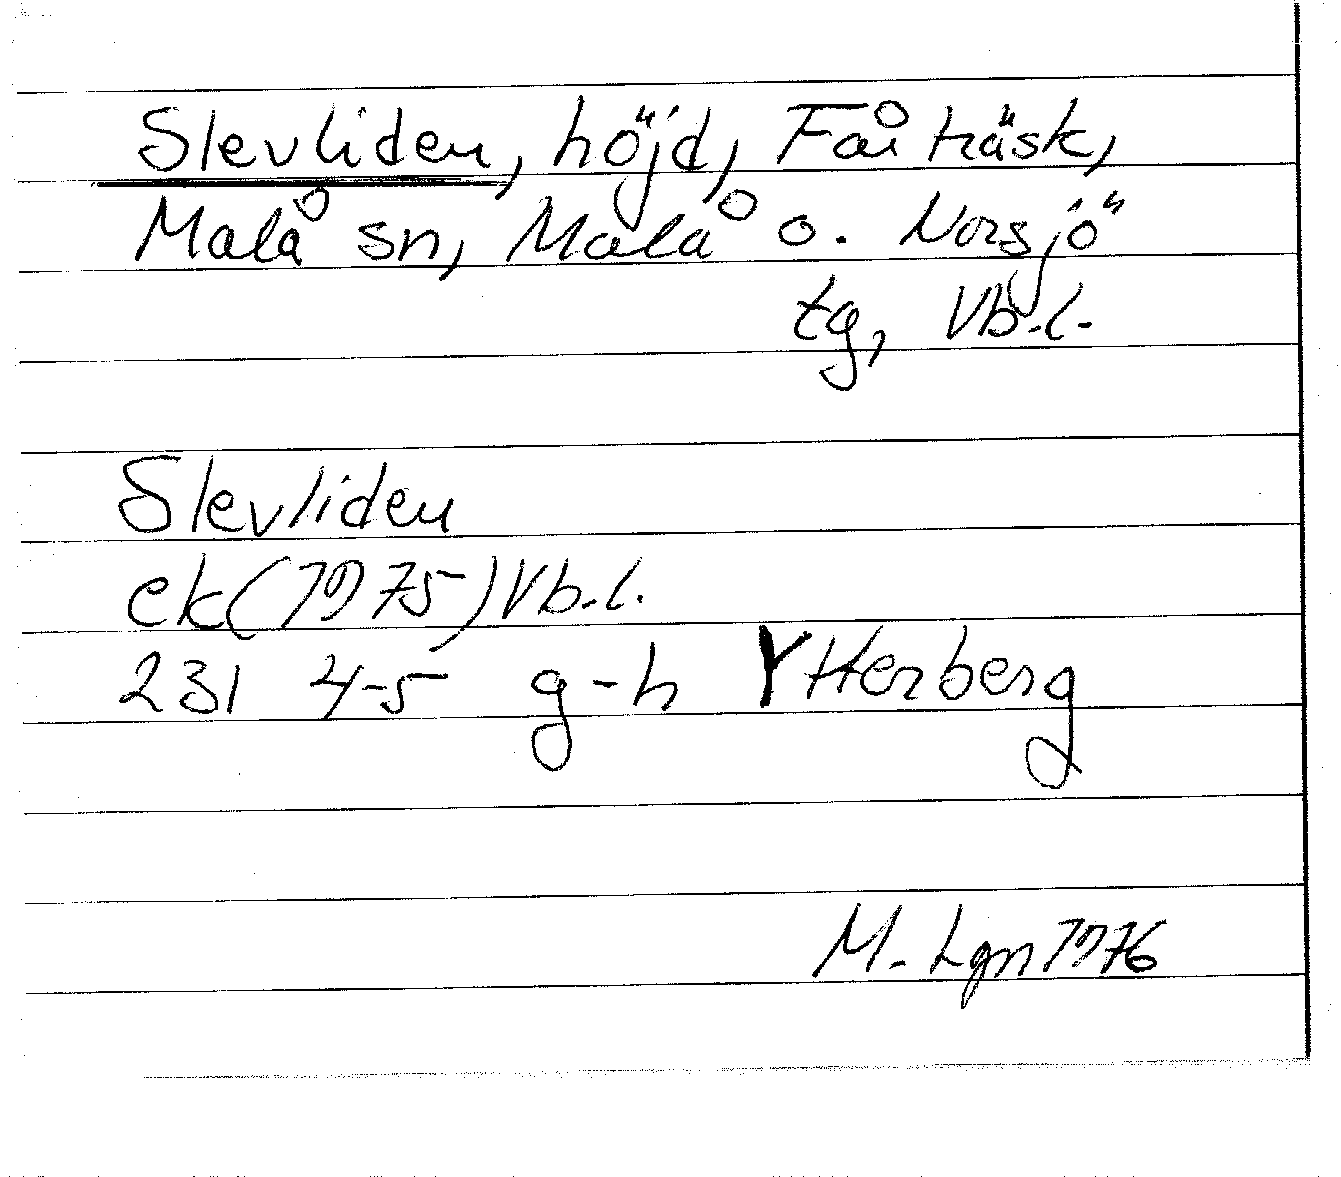 Slevliden, höjd, Fårträsk,
Malå sn, Malå o. Norsjö
tg, Vb.l.
Slevliden
ek(1975)Vb.l.
231 4-5 g-h Ytterberg
M. Lgn 1976